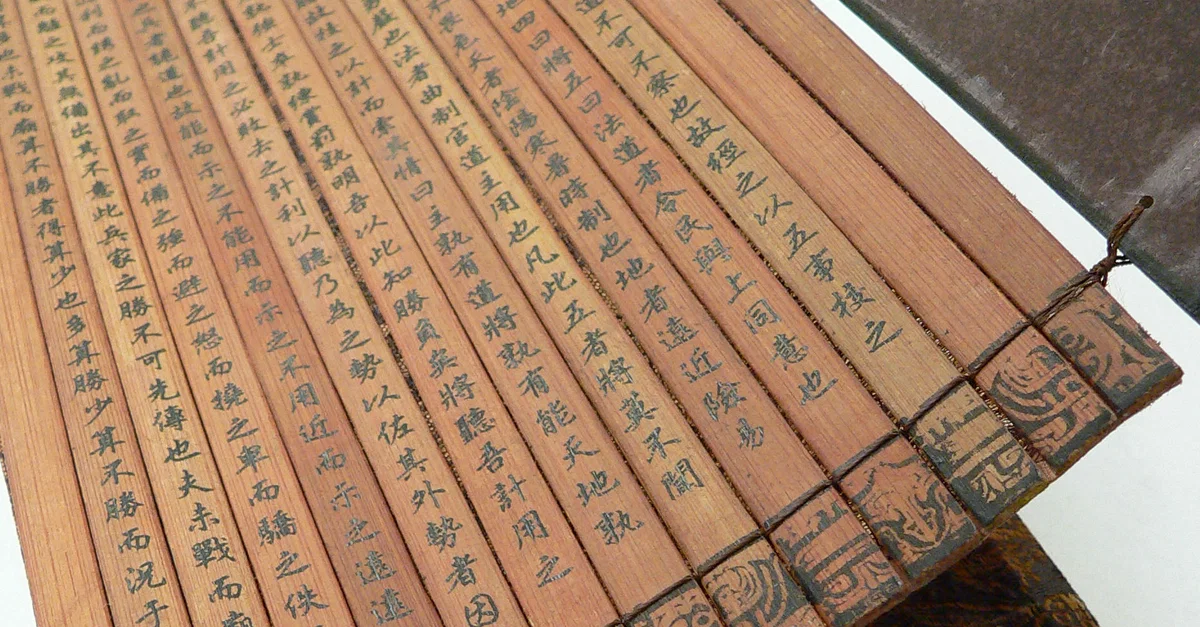 道不可不察也故經之以五事校之
地四曰將五曰法道者令民與上同意也
不畏危天者陰陽寒暑時制也地者遠近險易
嚴也法者曲制官道主用也凡此五者將莫不聞
故校之以計而索其情曰主孰有道將孰有能天地孰
士卒孰練賞罰孰明吾以此知勝負矣將聽吾計用之
不聽吾計用之必敗去之計利以聽乃為之勢以佐其外勢者因
兵者詭道也故能而示之不能用而示之不用近而示之遠遠
而誘之亂而取之實而備之強而避之怒而撓之卑而驕之佚
離之攻其無備出其不意此兵家之勝不可先傳也夫未戰而廟
未戰而廟算不勝者得算少也多算勝少算不勝而況于